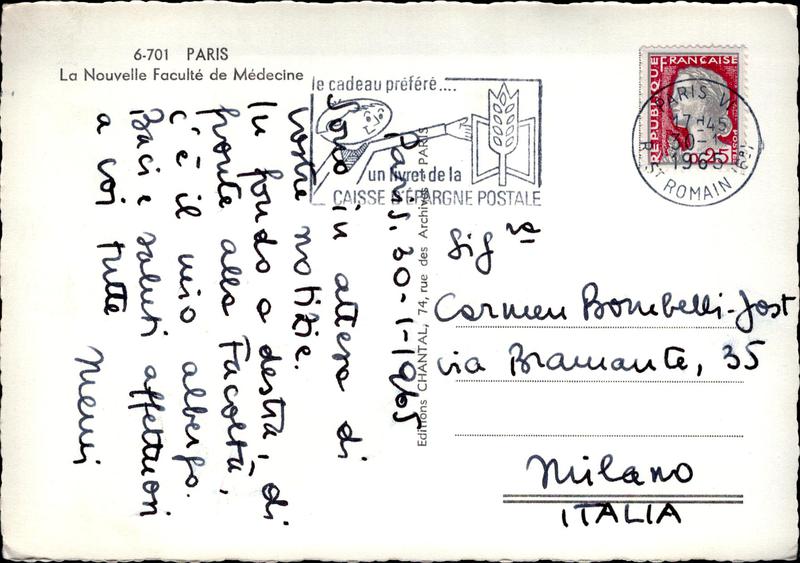 6-701 PARIS
La Nouvelle Faculté de Médecine
le cadeau préféré....
un livret de la
CAISSE D'ÉPARGNE POSTALE
REPUBLIQUE FRANÇAISE
POSTES
0,25
PARIS VI
17H45
30-1
1965
R. ST ROMAIN (6e)
Paris, 30-1-1965
Sono in attesa di
vostre notizie.
In fondo a destra, di
fronte alla Facoltà,
c'è il mio albergo.
Baci e saluti affettuosi
a voi tutte
Editions CHANTAL, 74, rue des Archives - PARIS
Sig.ra
Carmen Bombelli-Jost
via Bramante, 35
Milano
ITALIA